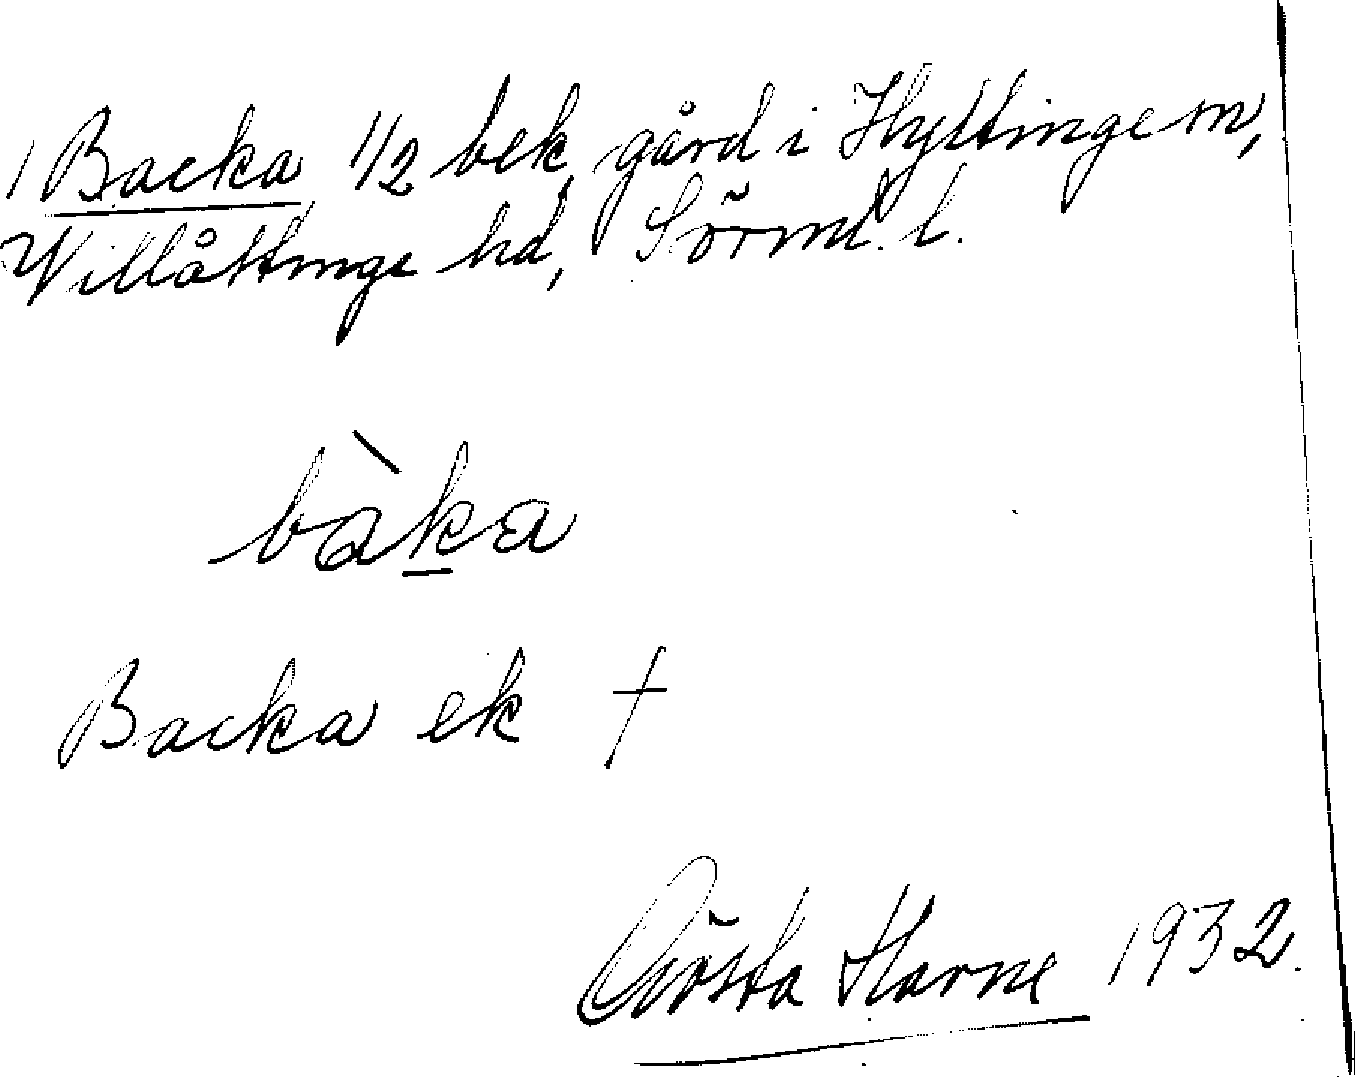 1 Backa 1/2 bek, gård i Hyltinge sn,
Villåttinge hd, Sörml. l.
bàka
Backa ek †
Gösta Harne 1932.